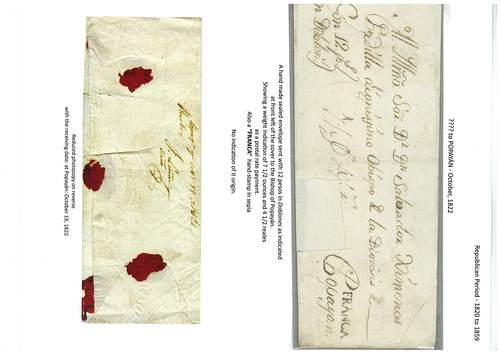 Republican Period - 1820 to 1859
???? to POPAYÁN - October, 1822
Al Yllmo Sor Dr Dn Salvador Ximenes
Padilla dignisimo Obispo de la Diocesis de
Con 12 ps
en Doblons
FRANCA
Popayan
A hand made sealed envelope sent with 12 pesos in Doblones as indicated
at front left of the cover to the Bishop of Popayán.
Showing a weight indication of 7 1/2 ounces and 4 1/2 reales
as a postal rate payment.
Also a "FRANCA" hand-stamp in sepia
No indication of it origin.
Reduced photocopy on reverse
with the receiving date: at Popayán: October 19, 1822